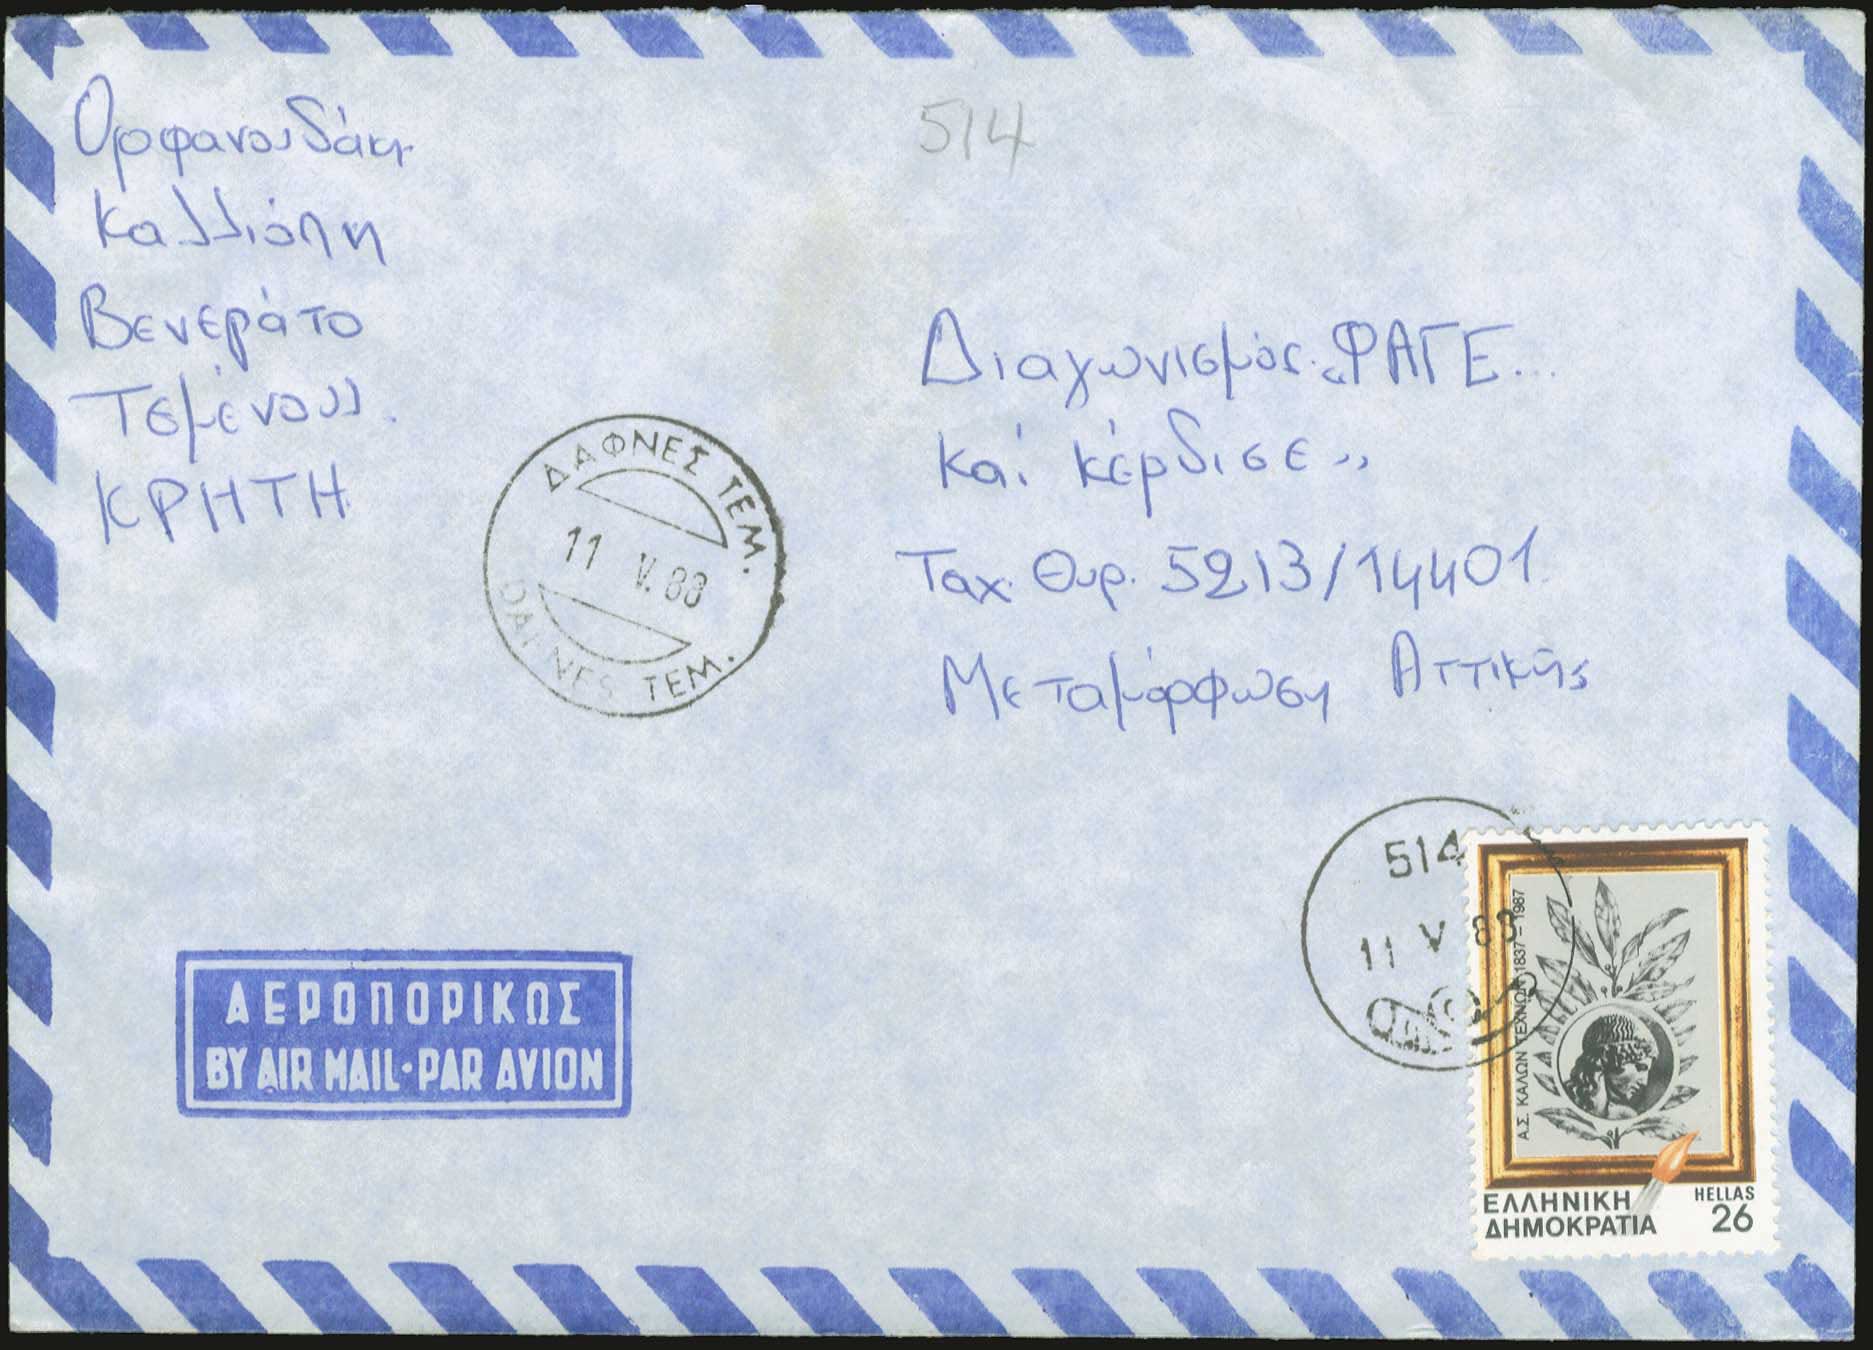 Ορφανουδάκη
Καλλιόπη
Βενεράτο
Τεμένους
ΚΡΗΤΗ
514
Διαγωνισμός «ΦΑΓΕ...
και κέρδισε»
Ταχ. Θυρ. 5213/14401
Μεταμόρφωση Αττικής
ΔΑΦΝΕΣ ΤΕΜ.
11 V. 88
DAFNES TEM.
514
11 V 88
Α.Σ. ΚΑΛΩΝ ΤΕΧΝΩΝ 1837-1987
ΕΛΛΗΝΙΚΗ
ΔΗΜΟΚΡΑΤΙΑ
HELLAS
26
ΑΕΡΟΠΟΡΙΚΩΣ
BY AIR MAIL·PAR AVION